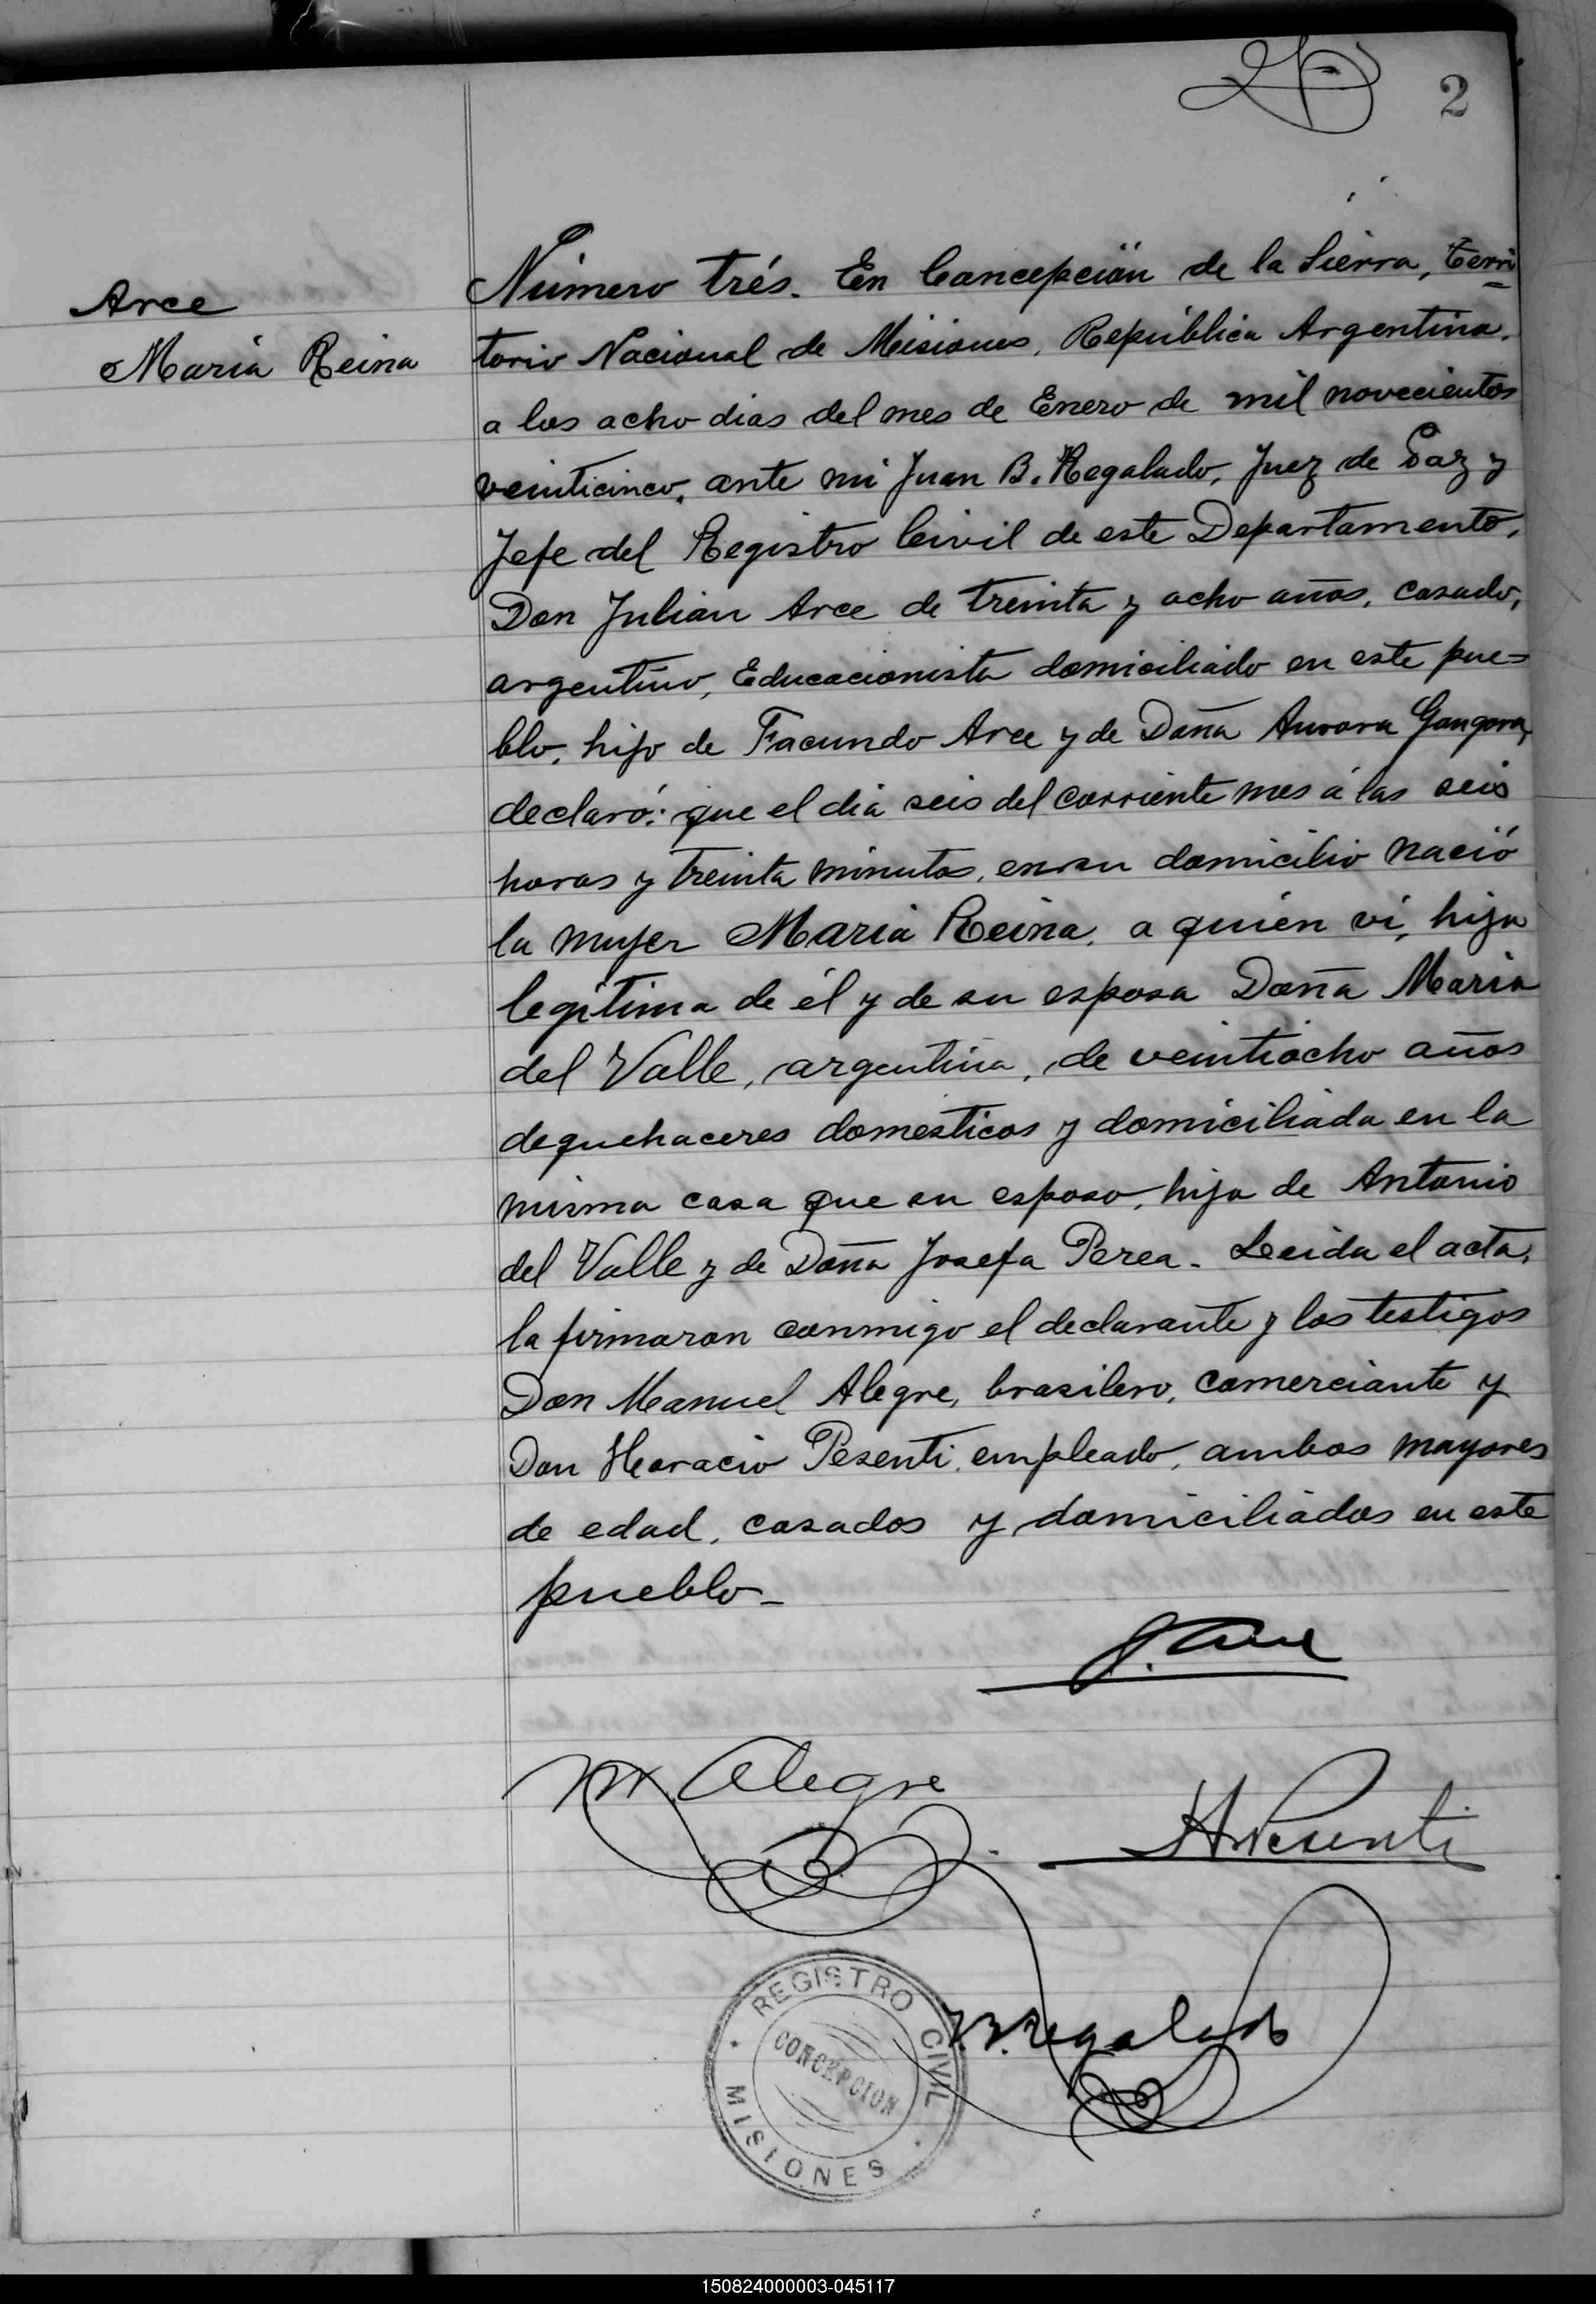 2
Arce
Maria Reina
Número trés. En Concepción de la Sierra, Terri=
torio Nacional de Misiones, República Argentina,
a los ocho dias del mes de Enero de mil novecientos
veinticinco, ante mi Juan B. Regalado, Juez de Paz y
Jefe del Registro Civil de este Departamento,
Don Julián Arce de treinta y ocho años, casado,
argentino, Educacionista domiciliado en este pue=
blo, hijo de Facundo Arce y de Doña Aurora Gongora,
declaró: que el dia seis del corriente mes á las seis
horas y treinta minutos, en su domicilio nació
la mujer Maria Reina, a quién vi, hija
legitima de él y de su esposa Doña Maria
del Valle, argentina, de veintiocho años
de quehaceres domesticos y domiciliada en la
misma casa que su esposo, hija de Antonio
del Valle y de Doña Josefa Perea. Leida el acta,
la firmaron conmigo el declarante y los testigos
Don Manuel Alegre, brasilero, comerciante y
Don Horacio Pesenti, empleado, ambos mayores
de edad, casados y domiciliados en este
pueblo_
J. Arce
M. Alegre
H Pesenti
J.B. Regalado
REGISTRO CIVIL
CONCEPCION
MISIONES
150824000003-045117